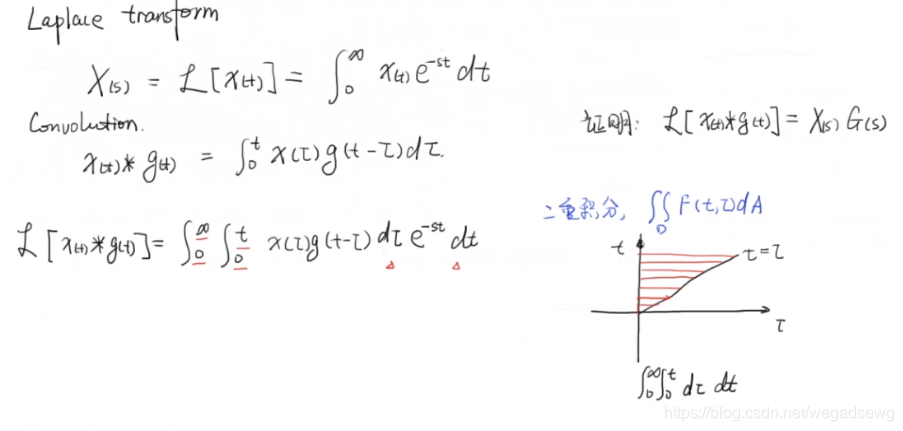 Laplace transform
X(s) = ℒ[x(t)] = ∫₀^∞ x(t) e^{-st} dt
Convolution.
x(t) * g(t) = ∫₀^t x(τ) g(t-τ) dτ.
证明: ℒ[x(t)*g(t)] = X(s) G(s)
ℒ[x(t)*g(t)] = ∫₀^∞ ∫₀^t x(τ) g(t-τ) dτ e^{-st} dt
二重积分, ∬_D F(t,τ) dA
t
τ=τ
τ
∫₀^∞ ∫₀^t dτ dt
https://blog.csdn.net/wegadsewg